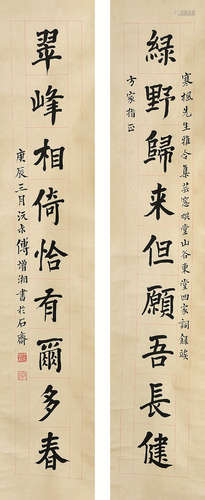 綠野歸来但願吾長健
寒楓先生雅令集芸窗烘堂山谷東堂四家詞録奉
方家指正
翠峰相倚恰有爾多春
庚辰三月沅未傅增湘書於石齋